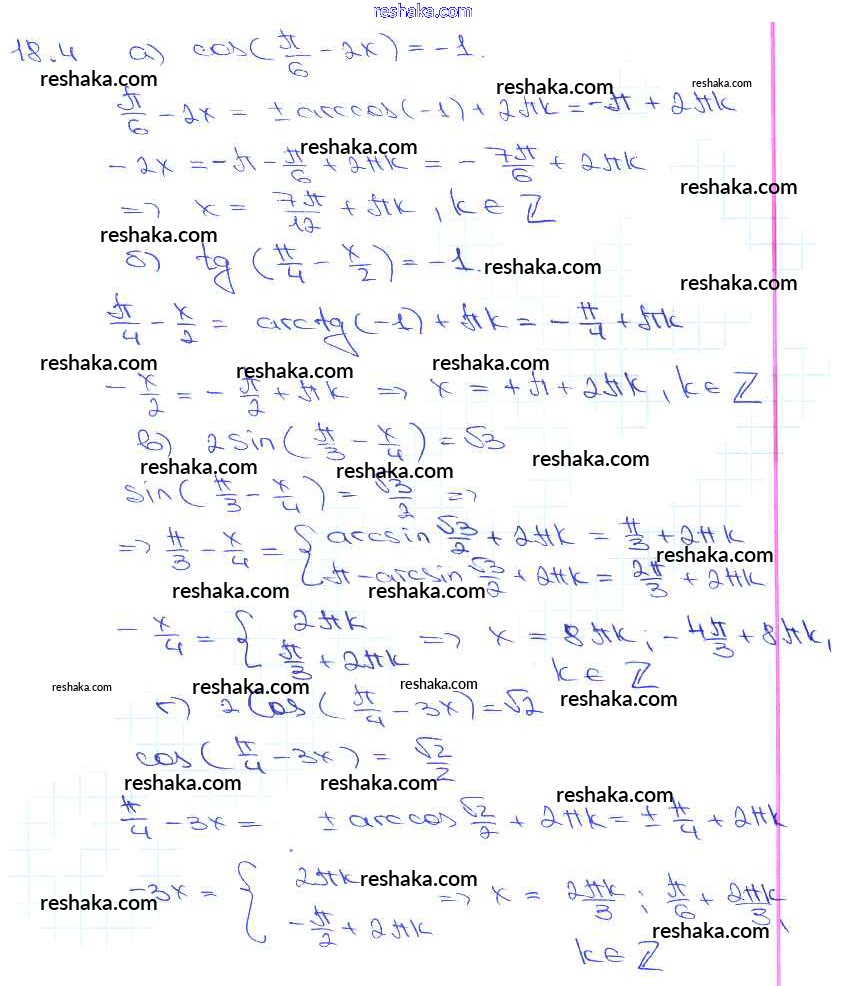 reshaka.com
18.4 а) cos(π/6 - 2x) = -1.
reshaka.com reshaka.com reshaka.com
π/6 - 2x = ± arccos(-1) + 2πk = -π + 2πk
reshaka.com
-2x = -π - π/6 + 2πk = - 7π/6 + 2πk
reshaka.com
=> x = 7π/12 + πk, k ∈ ℤ
reshaka.com
б) tg(π/4 - x/2) = -1.
reshaka.com
reshaka.com
π/4 - x/2 = arctg(-1) + πk = - π/4 + πk
reshaka.com reshaka.com
- x/2 = - π/2 + πk => x = +π + 2πk, k ∈ ℤ
в) 2 sin(π/3 - x/4) = √3
reshaka.com reshaka.com reshaka.com
sin(π/3 - x/4) = √3/2 =>
=> π/3 - x/4 = { arcsin √3/2 + 2πk = π/3 + 2πk
reshaka.com
π - arcsin √3/2 + 2πk = 2π/3 + 2πk
reshaka.com reshaka.com
- x/4 = { 2πk
π/3 + 2πk => x = 8πk; - 4π/3 + 8πk,
k ∈ ℤ
reshaka.com reshaka.com reshaka.com reshaka.com
г) 2 cos(π/4 - 3x) = √2
cos(π/4 - 3x) = √2/2
reshaka.com reshaka.com reshaka.com
π/4 - 3x = ± arccos √2/2 + 2πk = ± π/4 + 2πk
reshaka.com
-3x = { 2πk
- π/2 + 2πk => x = 2πk/3; π/6 + 2πk/3,
reshaka.com reshaka.com
k ∈ ℤ